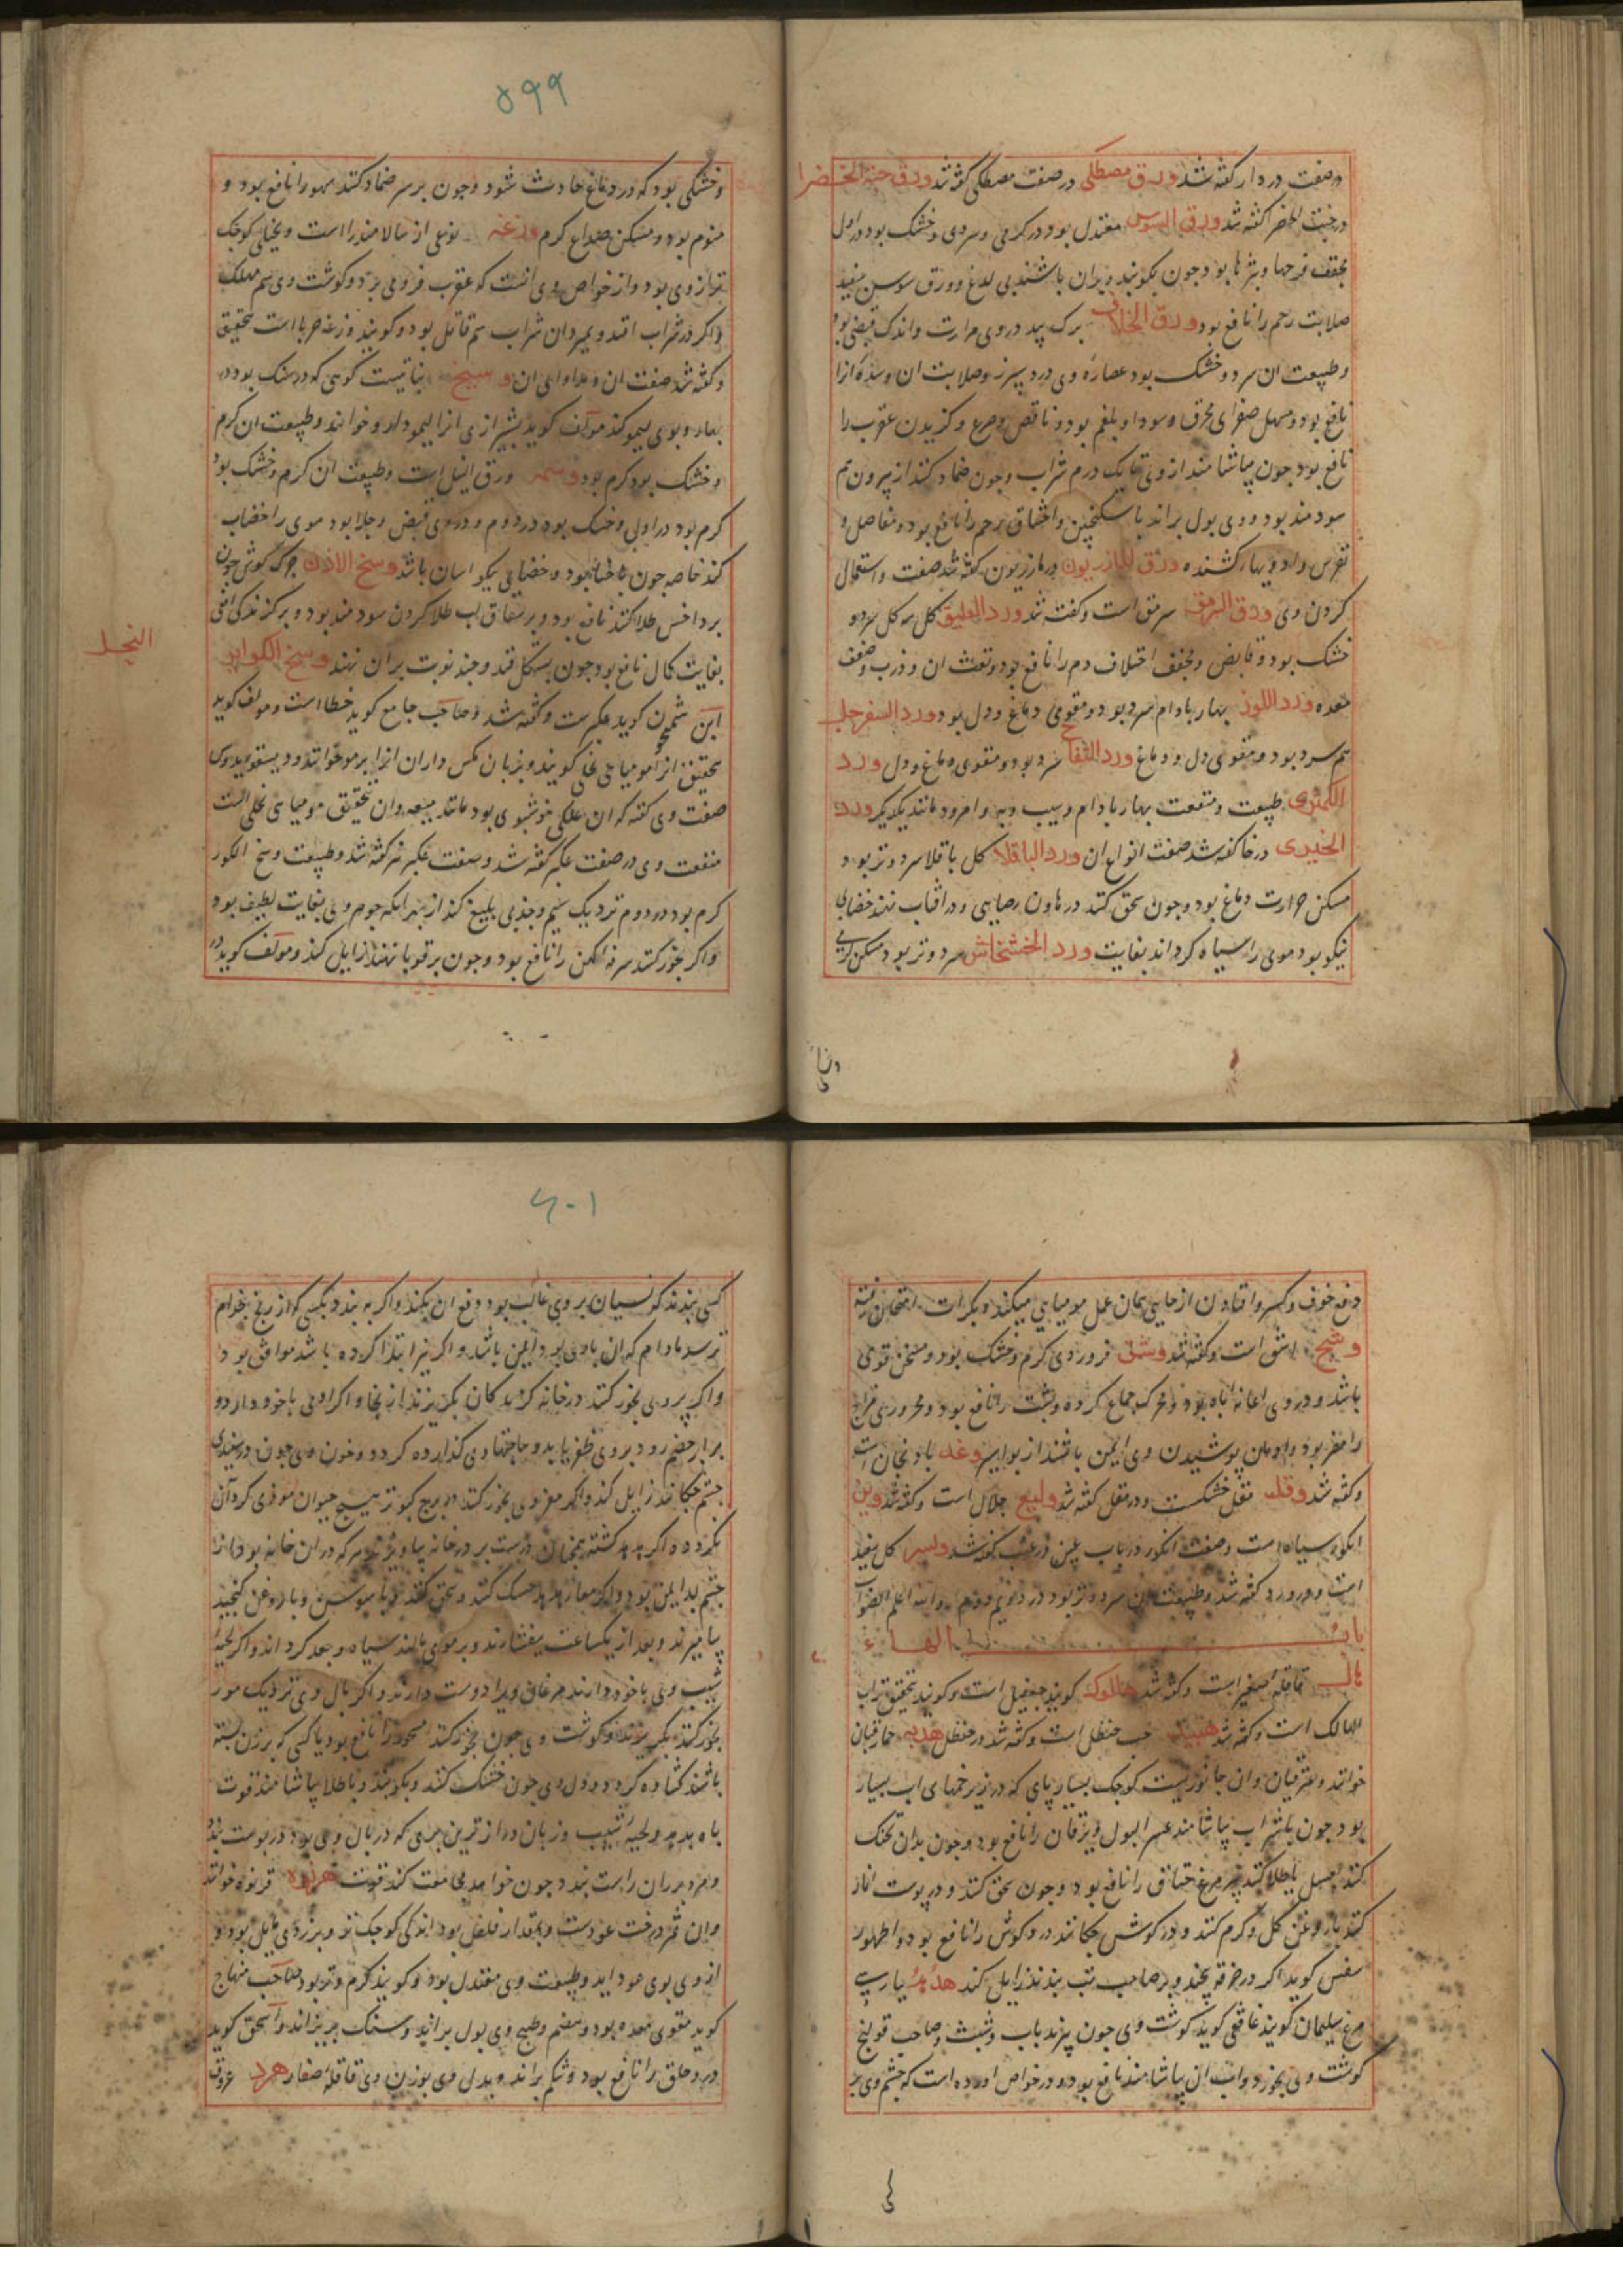 در صفت در دار کفته شد ورق مصطکی در صفت مصطکی کفته شد ورق حبة الخضرا
در حبت الخضرا کفته شد ورق السوس معتدل بود در کرمی و سردی و خشک بود در اول
مجفف قرحها و بثرها بود جون بکوبند و بران باشند بی لدغ و ورق سوسن سفید
صلابت رحم را نافع بود ورق الخلاف برک بید در وی مرارت و اندک قبضی بود
و طبیعت ان سرد و خشک بود عصاره وی درد سپرز و صلابت ان و سده انرا
نافع بود و مسهل صفرای محرق و سودا و بلغم بود و نافض و صرع و کزیدن عقرب را
نافع بود جون بیاشامند از وی تا یک درم شراب وجون ضماد کنند از بیرون هم
سودمند بود و وی بول براند با سکنجبین و اختناق رحم را نافع بود و مفاصل و
نقرس و ادویهاء کشنده ورق المازریون در مازریون کفته شد صفت و استعمال
کردن وی ورق السرمق سرمق است و کفته شد ورد العلیق کل سه کل سرد و
خشک بود و قابض و مجفف اختلاف دم را نافع بود و نفث ان و ذرب و ضعف
معده ورد اللوز بهار بادام سرد بود و مقوی دماغ و دل بود ورد السفرجل
هم سرد بود و مقوی دل و دماغ ورد التفاح سرد بود و مقوی دماغ و دل ورد
الکمثری طبیعت و منفعت بهار بادام و سیب و به و امرود مانند یکدیکر ورد
الخیری در خا کفته شد صفت انواع ان ورد الباقلا کل باقلا سرد و تر بود و
مسکن حرارت دماغ بود وجون سحق کنند در هاون رصاصی و در افتاب نهند خضابی
نیکو بود موی را سیاه کرداند بغایت ورد الخشخاش سرد و تر بود مسکن کرمی
۵۹۹
و خشکی بود که در دماغ حادث شود وجون بر سر ضماد کنند سهر را نافع بود و
منوم بود و مسکن صداع کرم وزغه نوعی از سالامندرا است و بغایت کوجک
تر از وی بود و از خواص وی انست که عقرب فرو می برد و کوشت وی سم مهلک
و اکر در شراب افتد و بمیرد ان شراب سم قاتل بود و کویند وزغه حربا است بتحقیق
و کفته شد صفت ان و مداوای ان وسیج نباتیست کوهی که در سنک بود در
بهار و بوی لیمو کند مولف کوید بشیرازی انرا لیمو دارو خوانند و طبیعت ان کرم
و خشک بود کرم بود وسمه ورق النیل است و طبیعت ان کرم و خشک بود
کرم بود در اول و خشک بود در دوم و در وی قبض و جلا بود موی را خضاب
کند خاصه جون با حنا بود و خضابی نیکو اسان باشد وسخ الاذن جرک کوش جون
بر داخس طلا کنند نافع بود و بر شقاق لب طلا کردن سودمند بود و بر کزندکی افعی
بغایت کمال نافع بود جون بسکافند و جند نوبت بران نهند وسخ الکوایر
النحل
ابن سمجون کوید عکبر است و کفته شد و صاحب جامع کوید خطا است و مولف کوید
بتحقیق انرا مومیائی نحلی کویند و بزبان مکس داران انرا برموم خوانند و دیسقوریدوس
صفت وی کفته که ان علکی خوشبوی بود مانند میعه و ان بتحقیق مومیای نحلی است
منفعت وی در صفت عکبر کفته شد و صفت عکبر نیز کفته شد و طبیعت وسخ الکور
کرم بود در دوم نزدیک سیم و جذبی بلیغ کند از بهر انکه جوهر وی بغایت لطیف بود
و اکر بخور کنند سرفه کهن را نافع بود وجون بر قوبا نهند زایل کند و مولف کوید در
دفع خوف و کسر و افتادن از جایی همان عمل مومیایی میکند و بکرات امتحان رفته
وشج اشق است و کفته شد وشق فرو وی کرم و خشک بود و مسخن قوی
باشد و در وی اعانة باه بود و محرک جماع کرده و پشت را نافع بود و محروری مزاج
را مضر بود و ادمان پوشیدن وی ایمن باشند از بواسیر وغد بادنجان است
و کفته شد وقل مقل خشکست و در مقل کفته شد ولیع جلال است و کفته شد وین
انکور سیاه است و صفت انکور در باب عین در عنب کفته شد ولیر کل سفید
است و در ورد کفته شد و طبیعت ان سرد و تر بود در دوم و الله اعلم الصواب
باب الهاء
هال قاقله صغیر است و کفته شد هالوک کویند جعفیل است و کویند بتحقیق تراب
الهالک است و کفته شد هبید حب حنظل است و کفته شد در حنظل هدبه حمار قبان
خوانند و عتر قبان و ان جانوریست کوجک بسیار پای که در زیر خمهای اب بسیار
بود جون با شراب بیاشامند عسر البول و یرقان را نافع بود وجون بدان تحنک
کنند بعسل یا طلا کنند بپر مرغ خناق را نافع بود وجون سحق کنند و در پوست انار
کنند با روغن کل و کرم کنند و در کوش جکانند درد کوش را نافع بود و اطهورس
سفس کوید اکر در خرقه بیچند و بر صاحب تب بندند زایل کند هدهد بپارسی
مرغ سلیمان کویند غافقی کوید کوشت وی جون بپزند باب و شبث و صاحب قولنج
کوشت وی بخورد و اب ان بیاشامند نافع بود و در خواص اورده است که جشم وی بر
۶۰۱
کسی بندند که نسیان بر وی غالب بود دفع ان بکند و اکر به بندد بکسی که از رنج جذام
ترسد مادام که ان با وی بود ایمن باشد و اکر نیز ابتدا کرده باشد موافق بود
و اکر پر وی بخور کنند در خانه کزندکان بکریزند از انجا و اکر ادمی با خود دارد و
برابر خصم رود بر وی ظفر یابد و حاجتها وی کذارده کردد و خون وی جون در سفیدی
جشم جکانند زایل کند و اکر مغز وی بخور کنند در برج کبوتر هیچ حیوان موذی کرد آن
نکردد و اکر هدهد کشته همجنان درست بر در خانه بیاویزند هر که در ان خانه بود از
جشم بد ایمن بود و اکر معاء هدهد خشک کنند و سحق کنند و با سوسن و با روغن کنجد
بیامیزند و بعد از یکساعت بیفشارند و بر موی مالند سیاه و جعد کرداند و اکر لحیه
شیب وی با خود دارند هر غافق ویرا دوست دارند و اکر بال وی نزدیک مور
بخور کنند بکریزند و کوشت وی جون بخور کنند مسحور را نافع بود یا کسی که بر زن بسته
باشند کشاده کردد و دل وی جون خشک کنند و بکوبند و با طلا بیاشامند قوت
باه بدهد و لحیه شیب و زبان دراز ترین پری که در بال وی بود در پوست بند
و مرد بر ران راست بندد جون خواهد مجامعت کند قوت هرنوه قرنوه خوانند
و ان ثمر درخت عودست و بمقدار فلفل بود اندکی کوجک تر و بزردی مایل بود و
از وی بوی عود اید و طبیعت وی معتدل بود و کویند کرم و تر بود صاحب منهاج
کوید مقوی معده بود و هضم و طبیخ وی بول براند و سنک بریزاند و اسحق کوید
درد حلق را نافع بود و شکم براند و بدل وی بوزن وی قاقله صغار هرد عروق